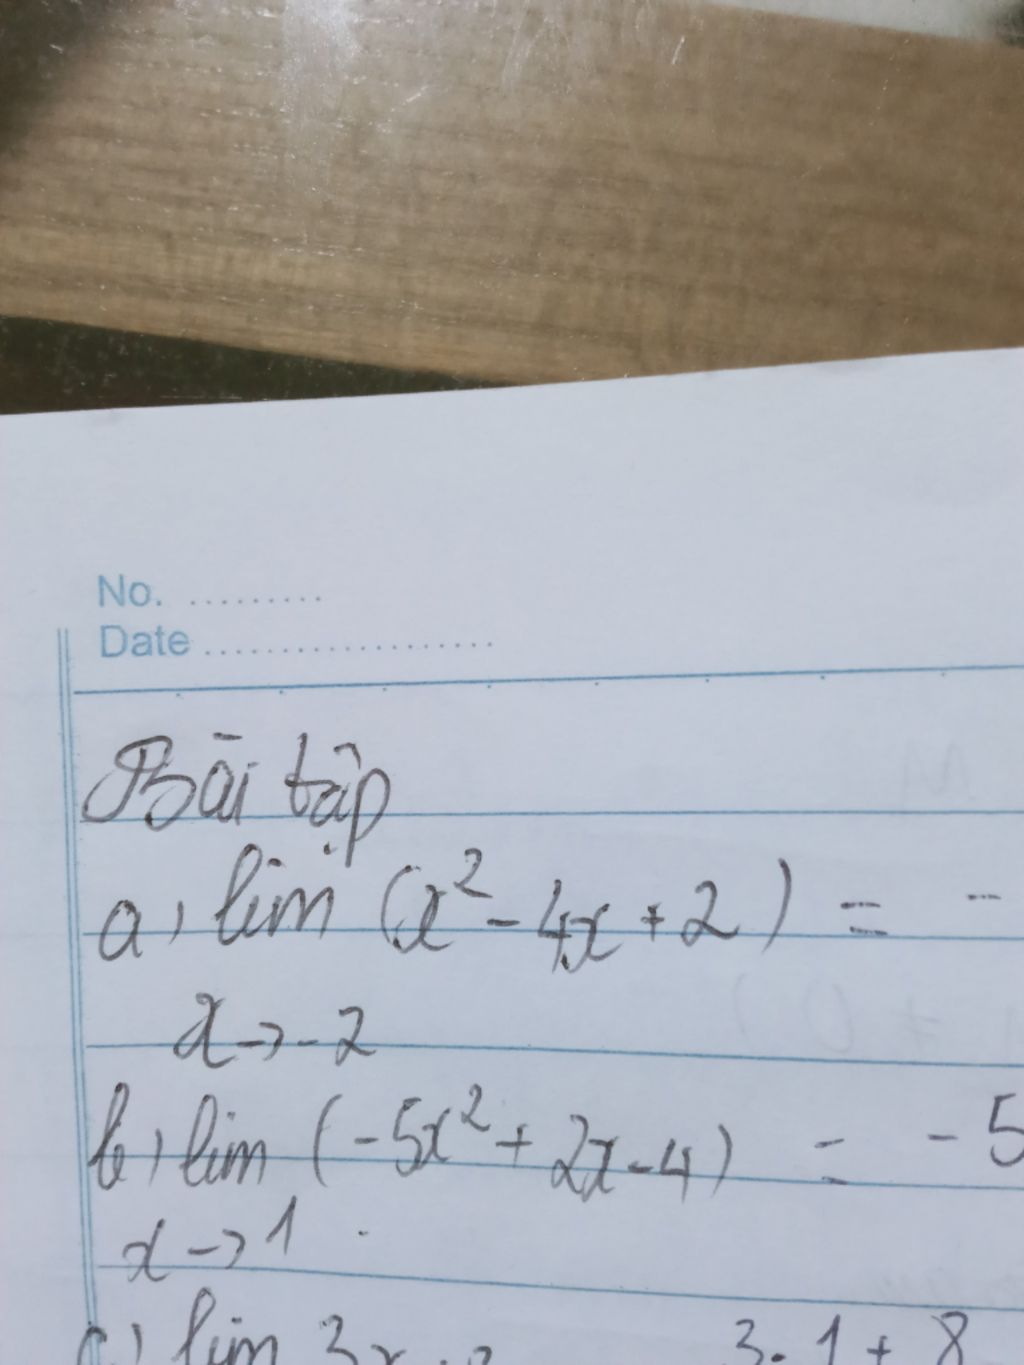 No. .........
Date ...................
Bài tập
a, lim (x² - 4x + 2) = -
x → -2
b, lim (-5x² + 2x - 4) = - 5
x → 1
c) lim 3x 3.1 + 8